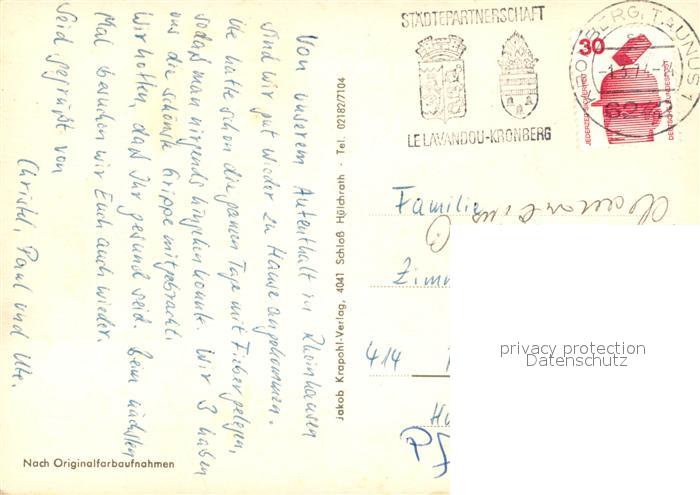 Von unserem Aufenthalt in Rheinhausen
sind wir gut wieder zu Hause angekommen.
Ute hatte schon die ganzen Tage mit Fieber gelegen,
sodaß man nirgends hingehen konnte. Wir 3 haben
uns die schönste Grippe mitgebracht.
Wir hoffen, daß Ihr gesund seid. Beim nächsten
Mal besuchen wir Euch auch wieder.
Seid gegrüßt von
Christel, Paul und Ute.
Nach Originalfarbaufnahmen
Jakob Krapohl-Verlag, 4041 Schloß Hülchrath · Tel. 02182/7104
STÄDTEPARTNERSCHAFT
LE LAVANDOU-KRONBERG
KRONBERG, TAUNUS 1
6242
30
JEDERZEIT SICHERHEIT
DEUTSCHE BUNDESPOST
Familie
Zimm
414
privacy protection
Datenschutz